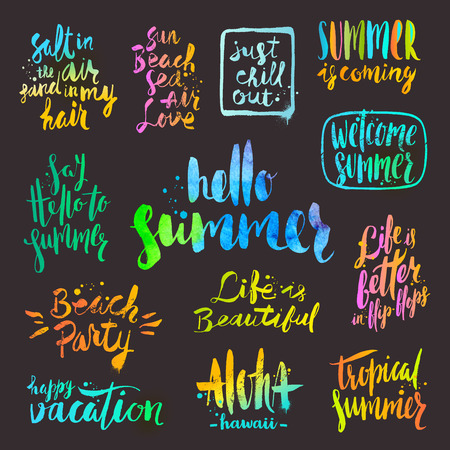 Salt in
the air
sand in my
hair
Sun
Beach
Sea
Air
Love
just
chill
out.
SUMMER
is coming
welcome
summer
Say
Hello to
summer
hello
summer
Life is
better
in flip flops
Beach
Party
Life is
Beautiful
happy
vacation
Aloha
-hawaii-
tropical
summer